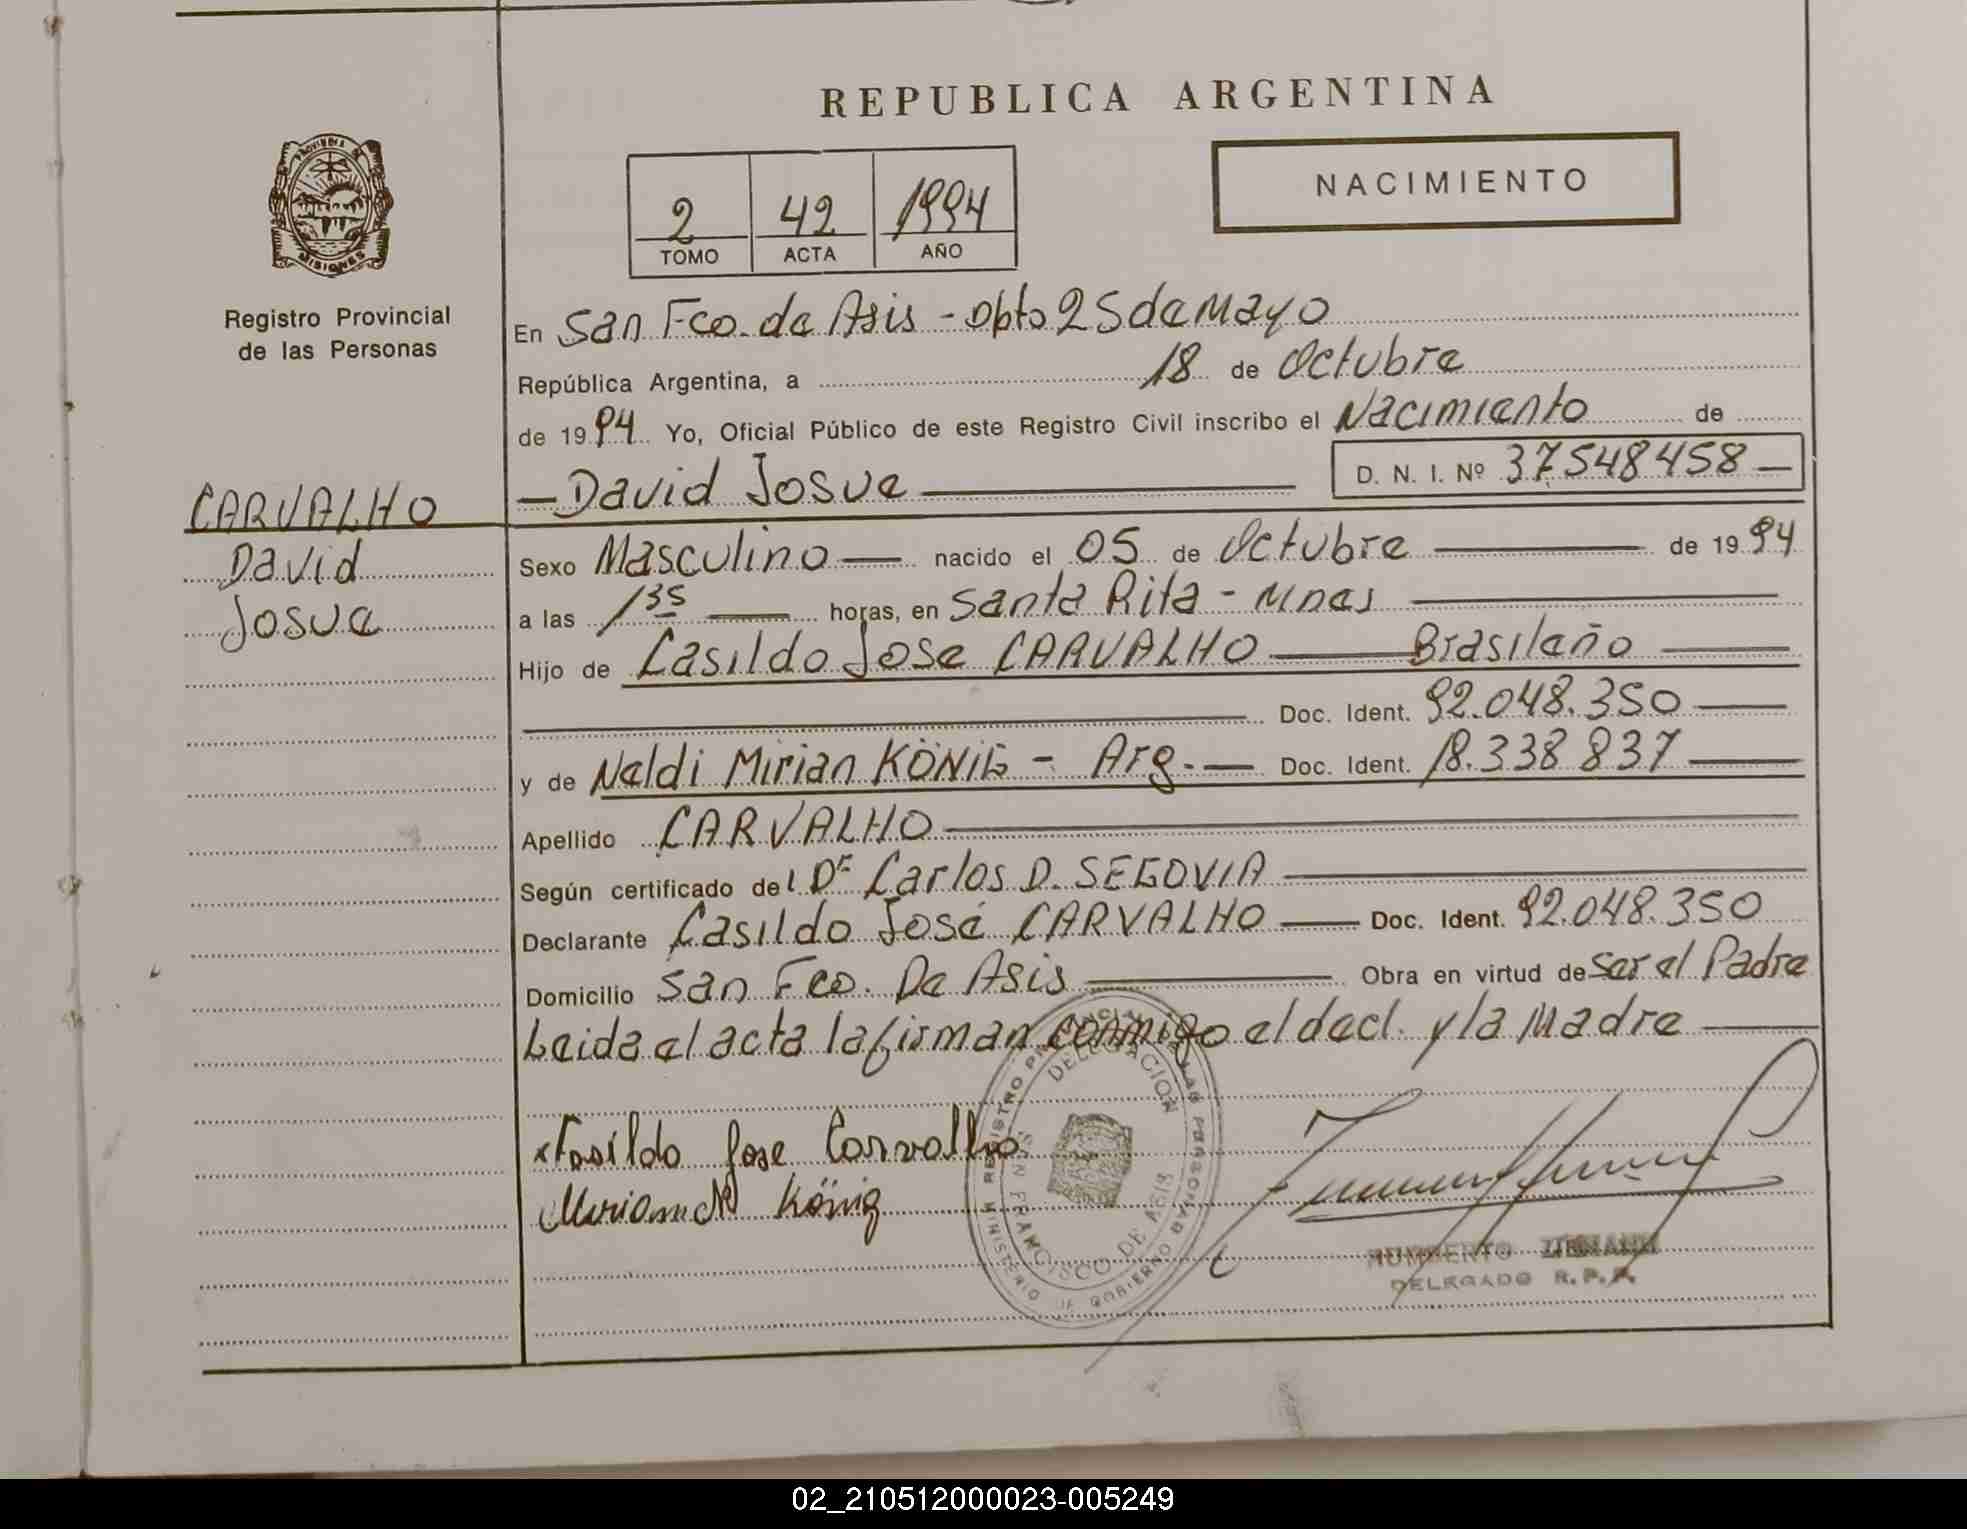 REPUBLICA ARGENTINA
PROVINCIA DE
MISIONES
2 42 1994
TOMO ACTA AÑO
NACIMIENTO
Registro Provincial
de las Personas
En San Fco. de Asis - Dpto 25 de Mayo
República Argentina, a 18 de Octubre
de 1994 Yo, Oficial Público de este Registro Civil inscribo el Nacimiento de
— David Josue — D. N. I. Nº 37548458 —
CARVALHO
David
Josue
Sexo Masculino — nacido el 05 de Octubre — de 1994
a las 1 35 — horas, en Santa Rita - Mnes —
Hijo de Casildo Jose CARVALHO — Brasileño —
— Doc. Ident. 92.048.350 —
y de Neldi Mirian KÖNIG - Arg. — Doc. Ident. 18.338 837 —
Apellido CARVALHO —
Según certificado del Dr Carlos D. SEGOVIA —
Declarante Casildo José CARVALHO — Doc. Ident. 92.048.350
Domicilio San Fco. De Asis — Obra en virtud de Ser el Padre
Leida el acta la firman conmigo el decl. y la Madre —
Casildo Jose Carvalho
König
REGISTRO PROVINCIAL DE LAS PERSONAS
DELEGACION
SAN FRANCISCO DE ASIS
MINISTERIO DE GOBIERNO
HUMBERTO
DELEGADO R. P. P.
02_210512000023-005249